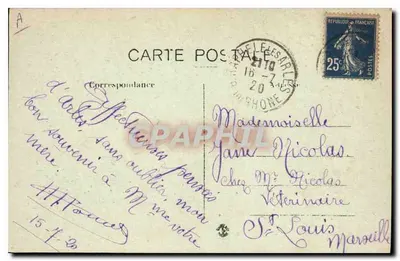 A
CARTE POSTALE
Correspondance
RÉPUBLIQUE FRANÇAISE
25c
POSTES
LES ARLES
21 10
16 - 7
20
RHONE
CPAPHIL
Affectueuses pensées
d'Arles sans oublier mon
bon souvenir à Mme votre
mère
15-7-20
Mademoiselle
Jane Nicolas
Chez Mr Nicolas
Vétérinaire
St Louis
Marseille